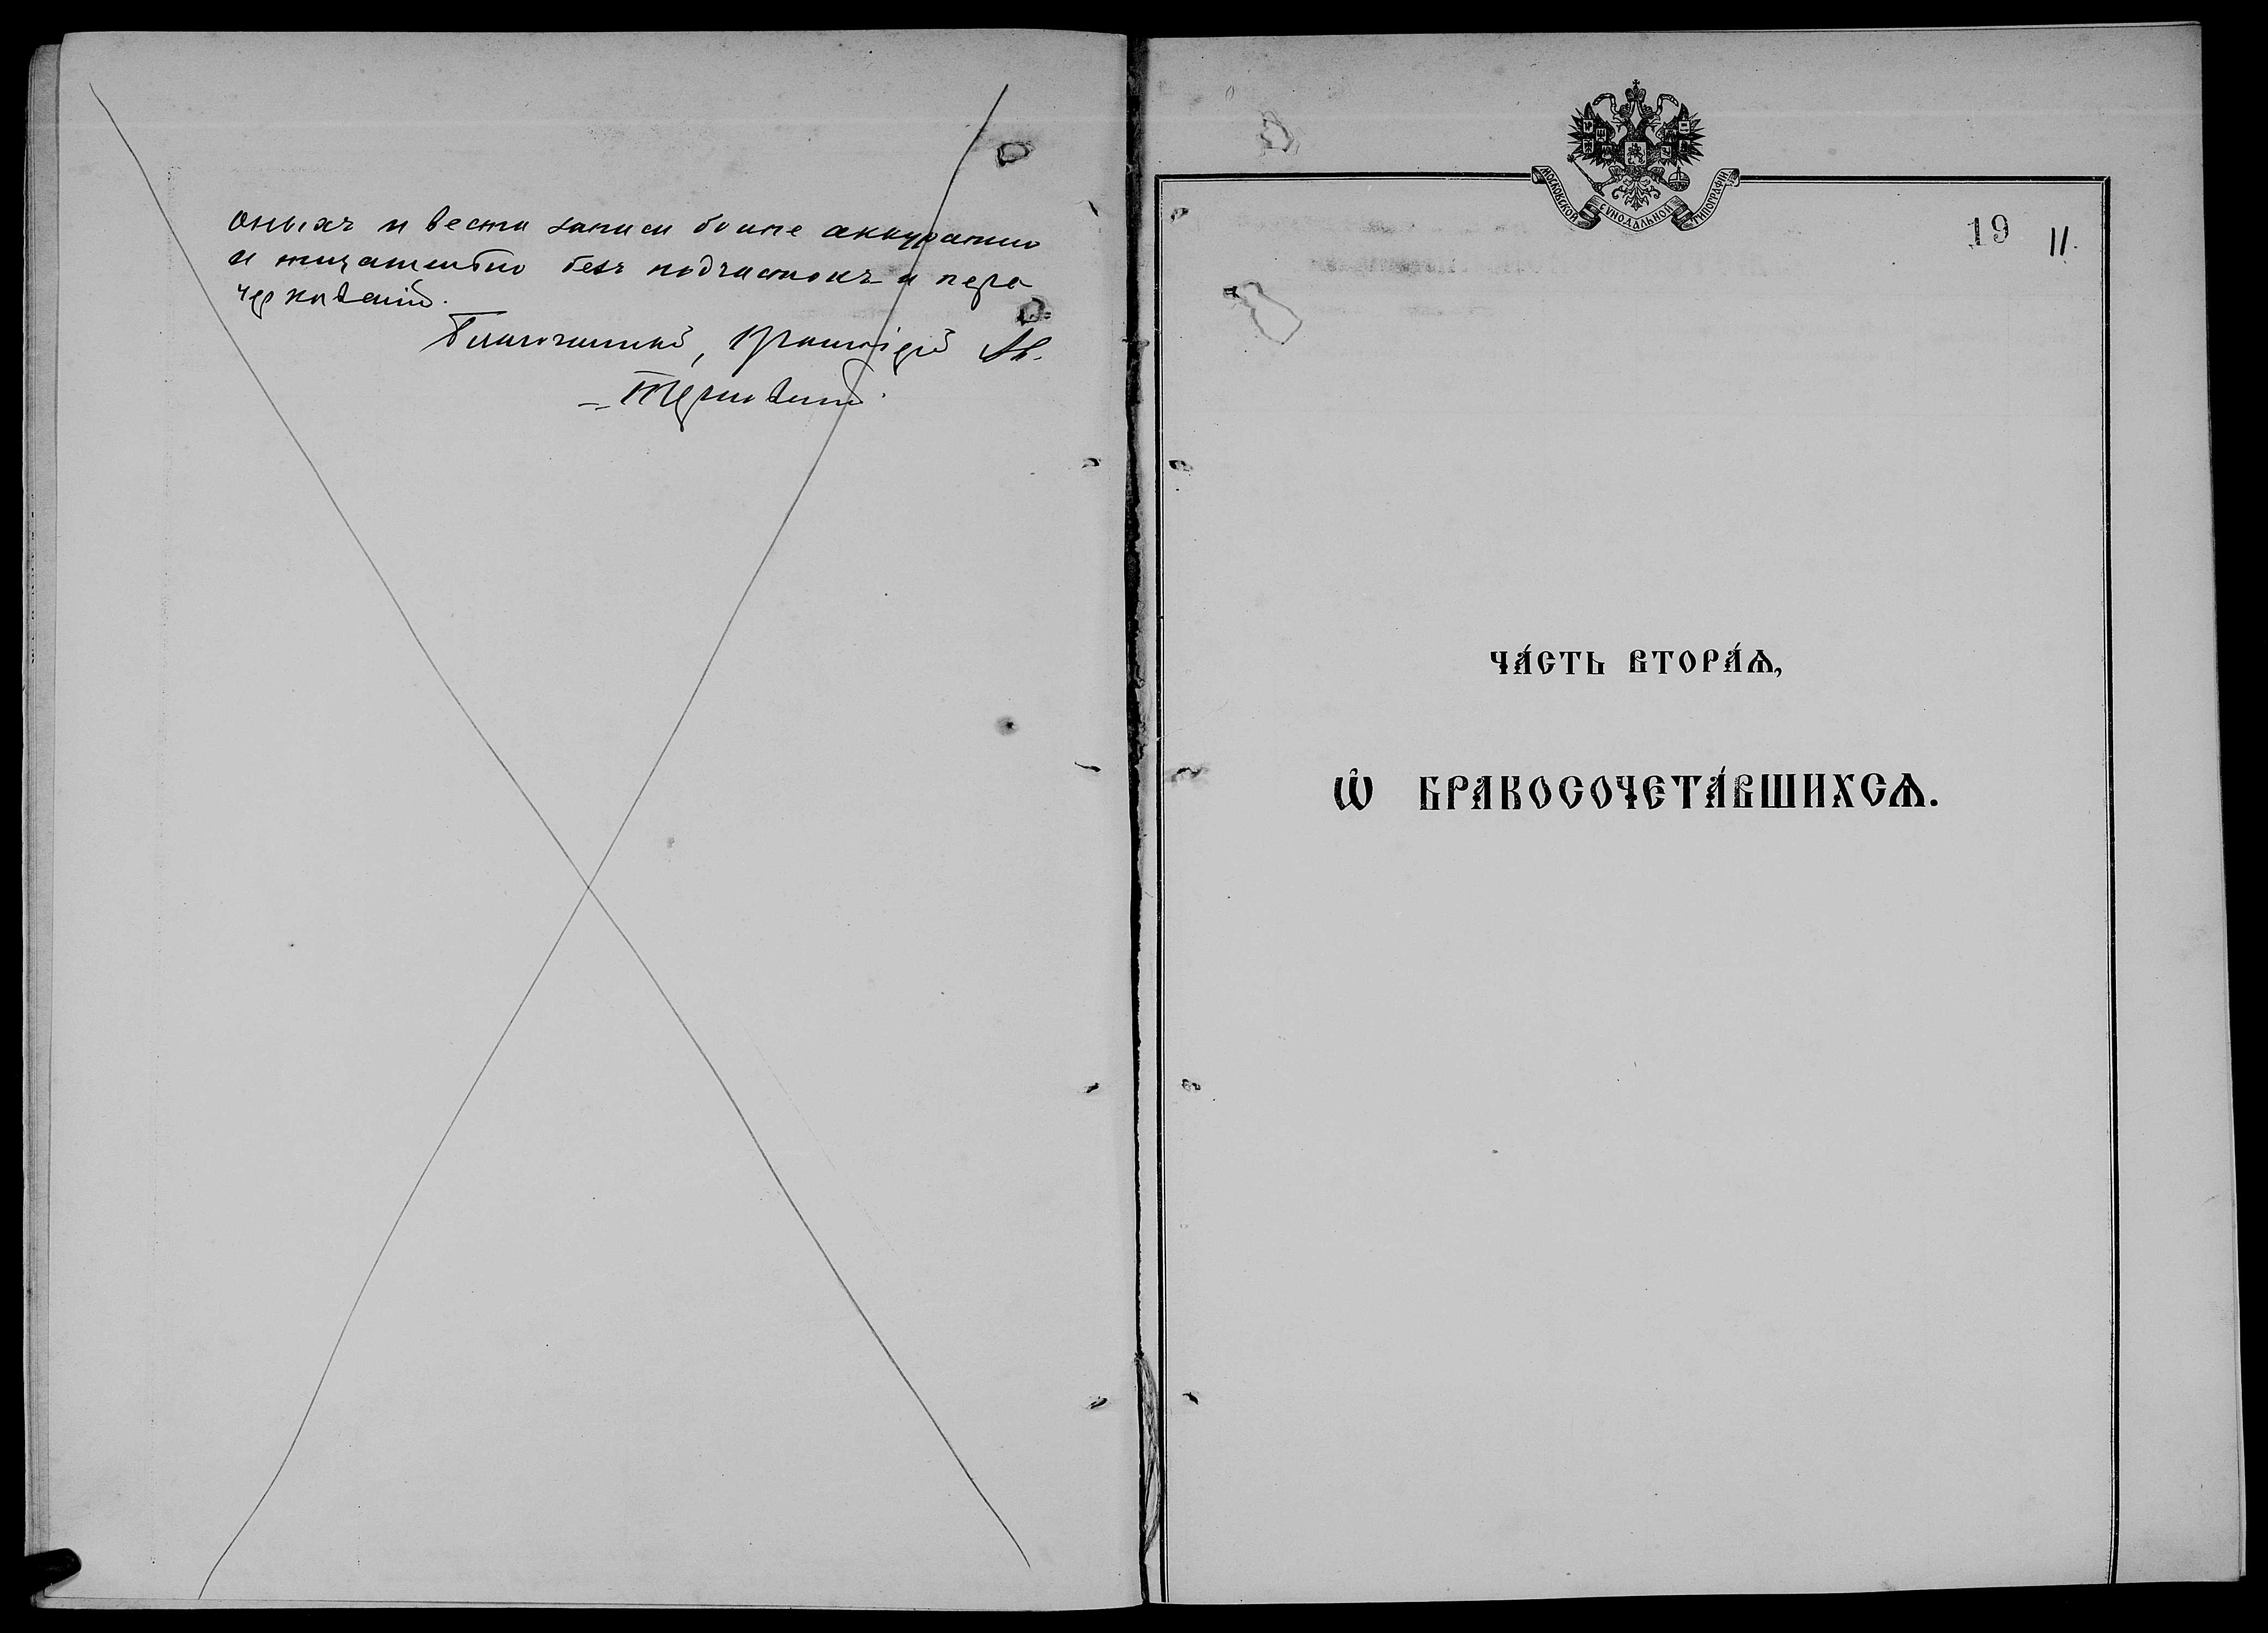 оныхъ и вести записи более аккуратно
и тщательно безъ подчистокъ и пере
черкиваній.
Благочинный, Протоіерей
МОСКОВСКОЙ СѴНОДАЛЬНОЙ ТИПОГРАФІИ
19 11.
ЧА́СТЬ ВТОРА́Ѧ,
Ѡ҆ БРАКОСОЧЕТА́ВШИХСѦ.